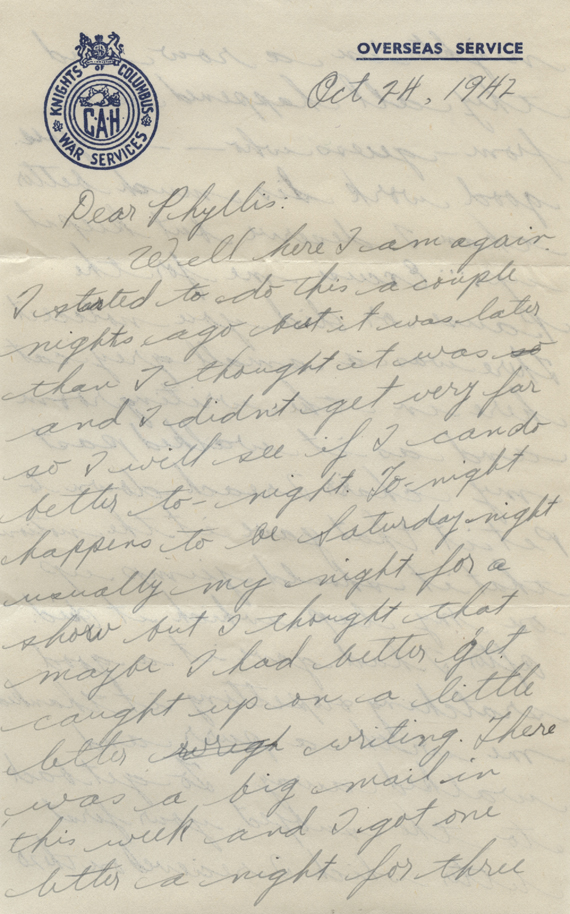 OVERSEAS SERVICE
KNIGHTS OF COLUMBUS
CAH
WAR SERVICES
Oct 24, 1942
Dear Phyllis:
Well here I am again.
I started to do this a couple
nights ago but it was later
than I thought it was so
and I didn't get very far
so I will see if I can do
better to-night. To-night
happens to be Saturday-night
usually my night for a
show but I thought that
maybe I had better get
caught up on a little
letter writing. There
was a big mail in
this week and I got one
letter a night for three